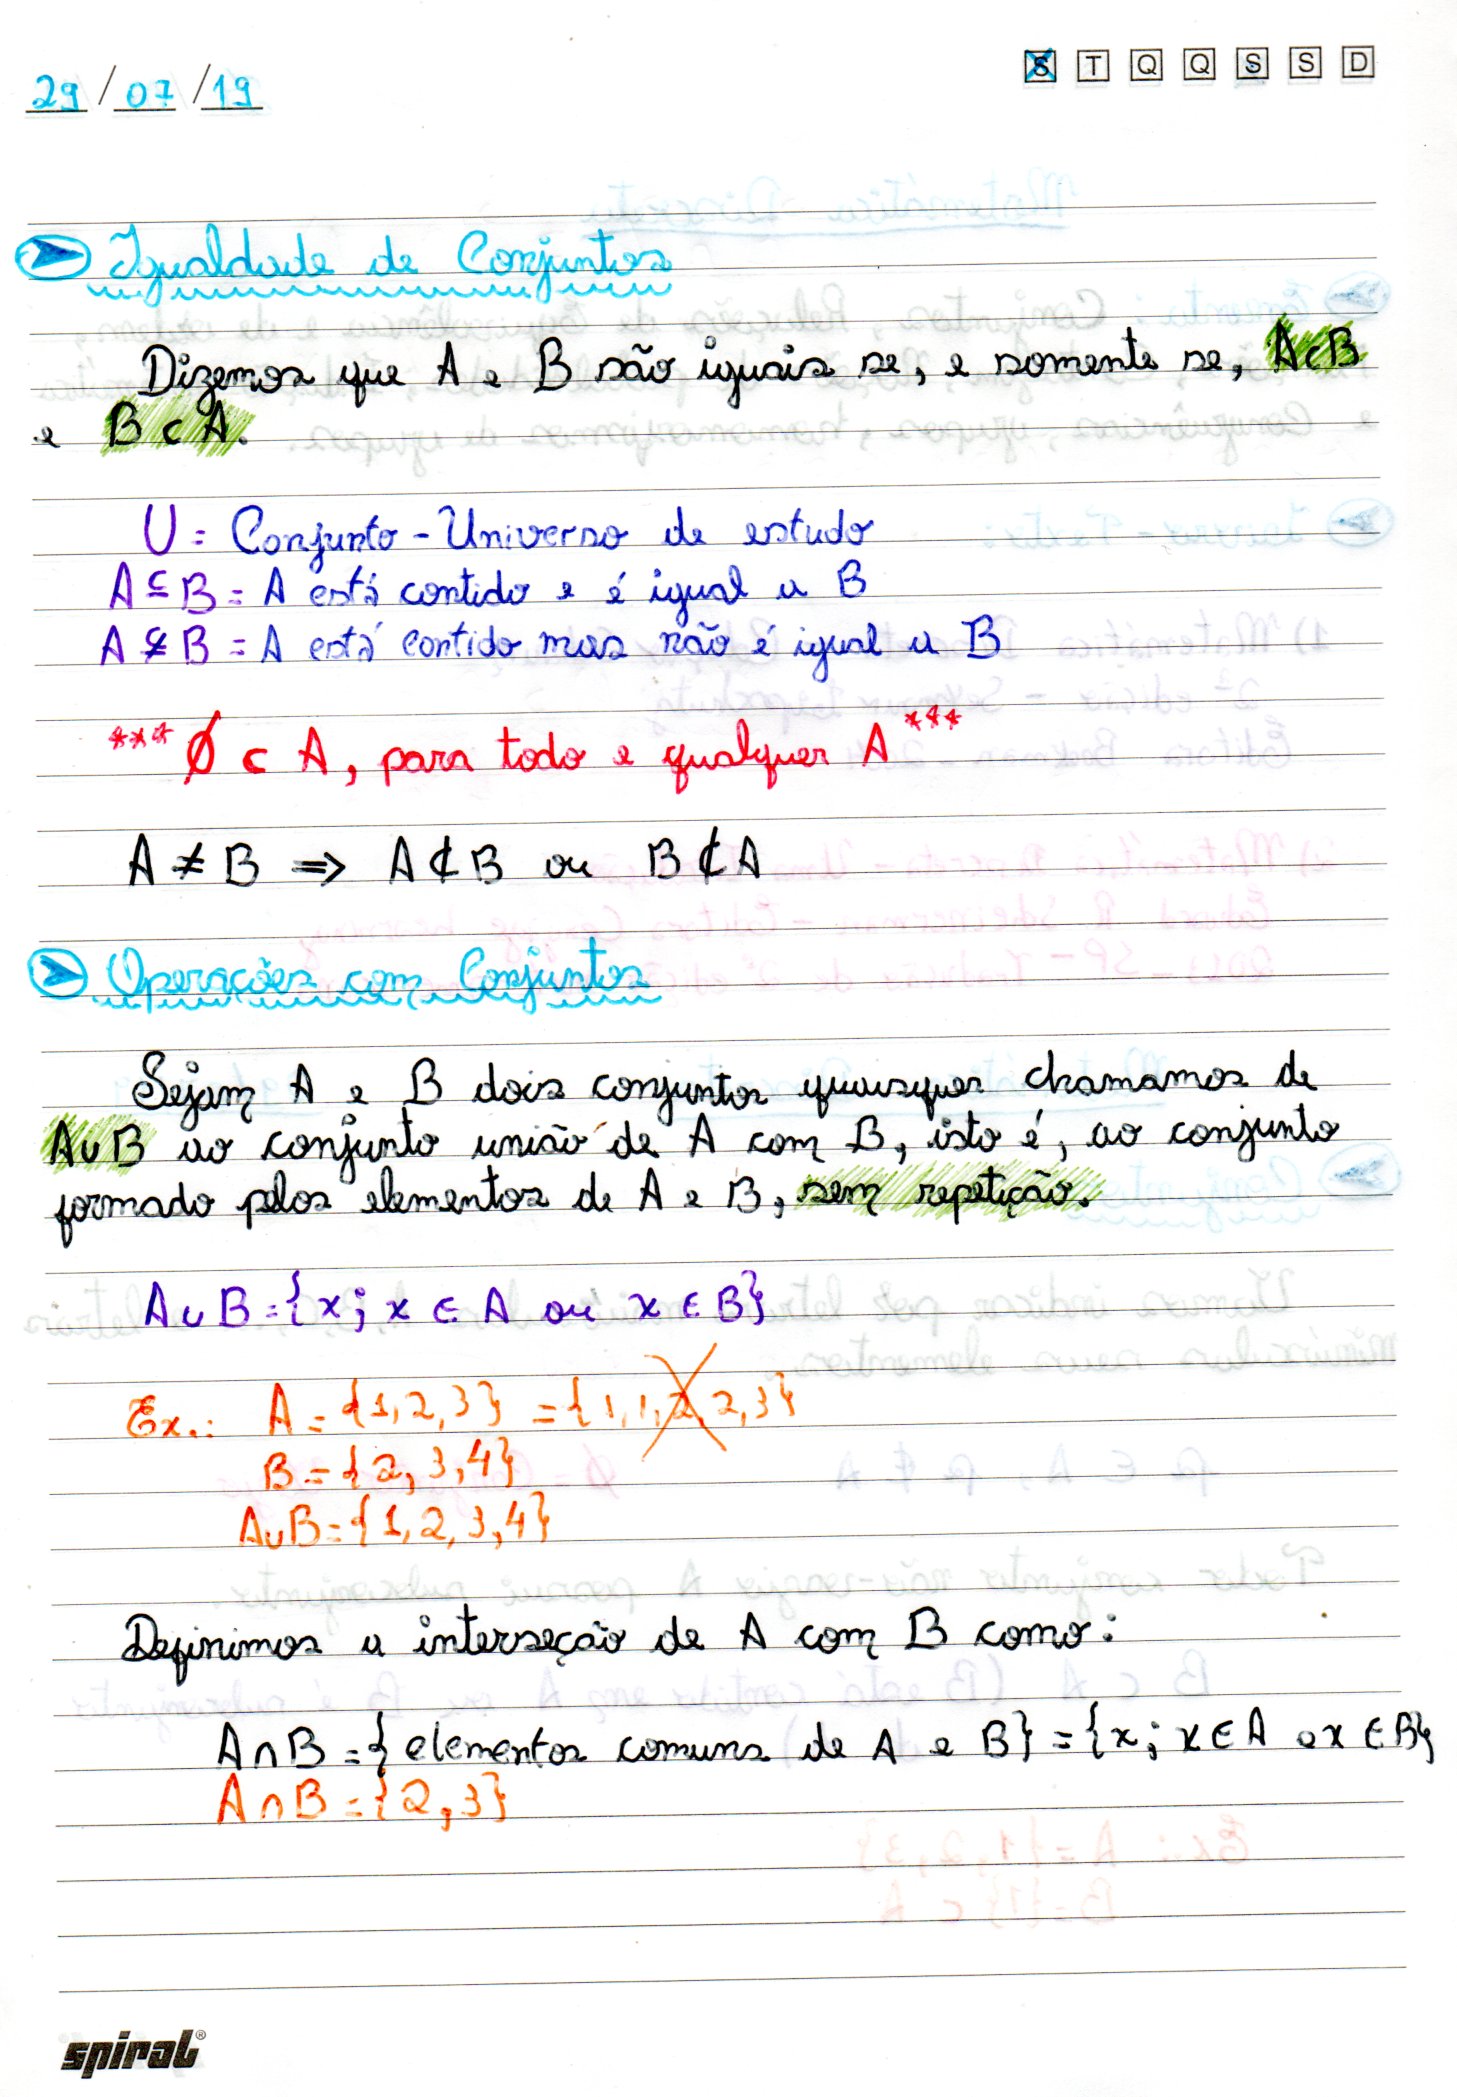 29/07/19
S T Q Q S S D
Igualdade de Conjuntos
Dizemos que A e B são iguais se, e somente se, A⊂B
e B⊂A.
U = Conjunto-Universo de estudo
A ⊆ B = A está contido e é igual a B
A ⊊ B = A está contido mas não é igual a B
*** Ø ⊂ A, para todo e qualquer A ***
A ≠ B ⇒ A ⊄ B ou B ⊄ A
Operações com Conjuntos
Sejam A e B dois conjuntos quaisquer chamamos de
A∪B ao conjunto união de A com B, isto é, ao conjunto
formado pelos elementos de A e B, sem repetição.
A∪B = {x; x ∈ A ou x ∈ B}
Ex.: A = {1,2,3} = {1,1,2,2,3}
B = {2,3,4}
A∪B = {1,2,3,4}
Definimos a interseção de A com B como:
A∩B = {elementos comuns de A e B} = {x; x ∈ A e x ∈ B}
A∩B = {2,3}
spiral®